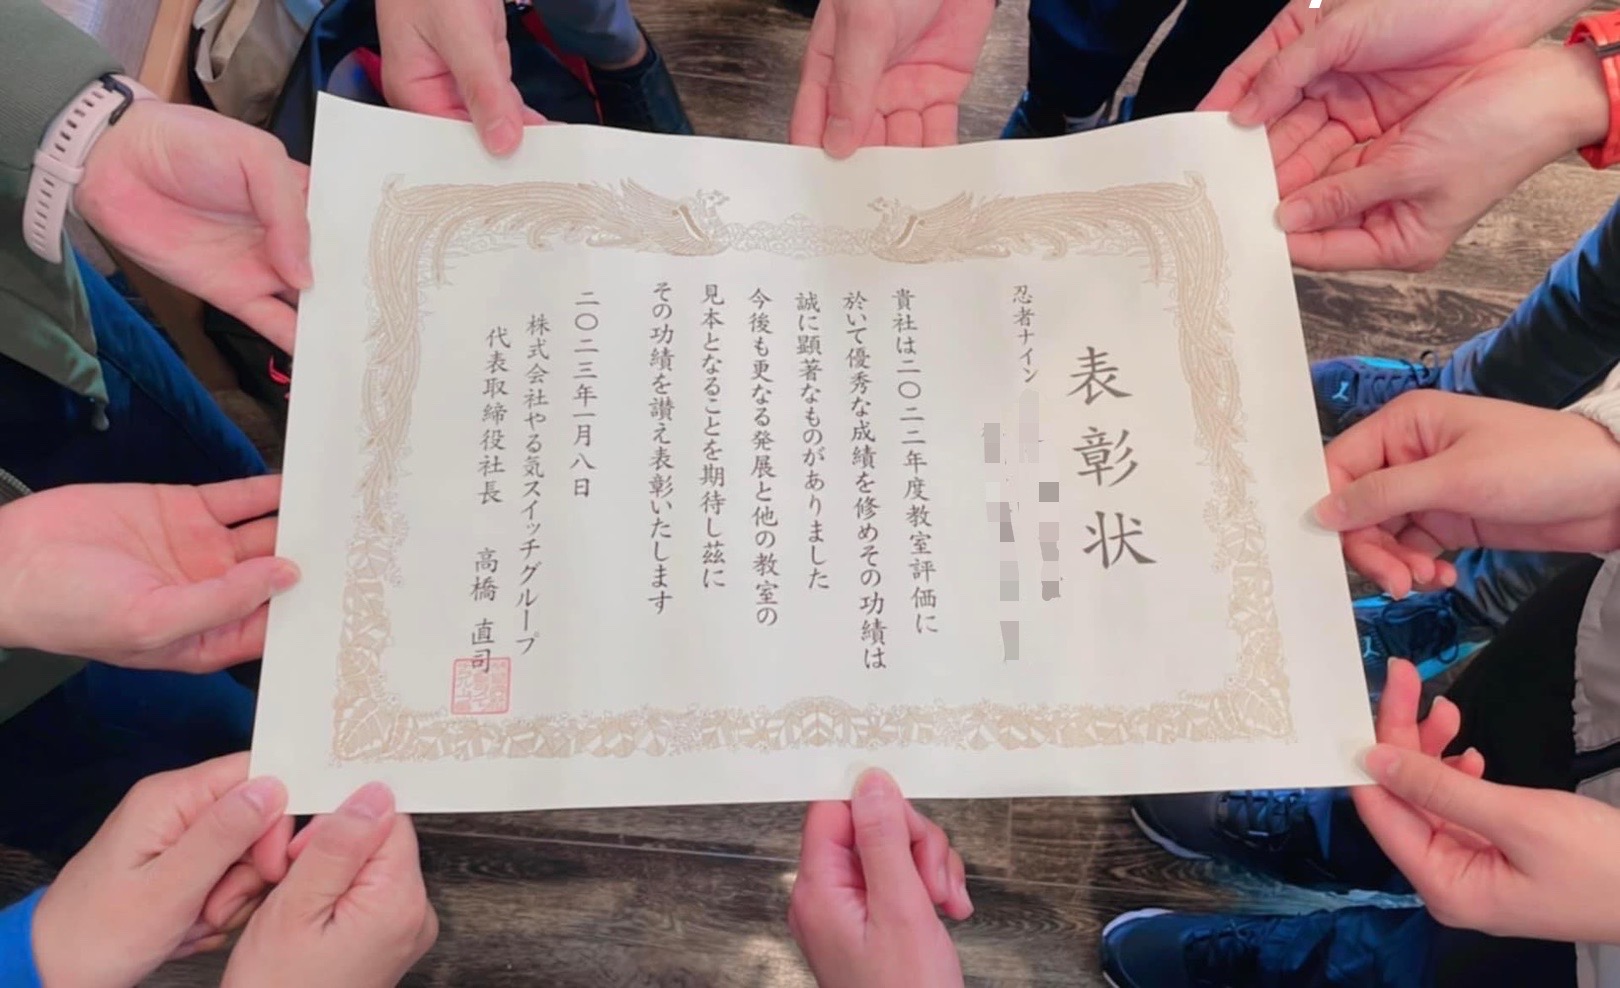 表彰状
忍者ナイン
貴社は二〇二二年度教室評価に
於いて優秀な成績を修めその功績は
誠に顕著なものがありました
今後も更なる発展と他の教室の
見本となることを期待し茲に
その功績を讃え表彰いたします
二〇二三年一月八日
株式会社やる気スイッチグループ
代表取締役社長 高橋 直司